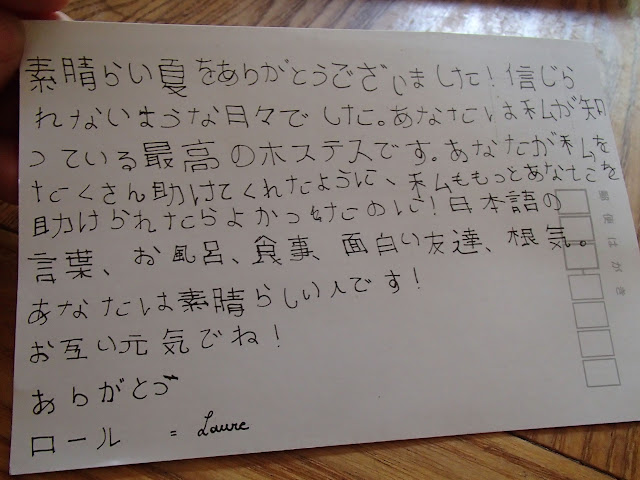 素晴らい夏をありがとうございました！信じら
れないような日々でした。あなたは私が知
っている最高のホステスです。あなたが私を
たくさん助けてくれたように、私ももっとあなたを
助けられたらよかったのに！日本語の
言葉、お風呂、食事、面白い友達、根気。
あなたは素晴らしい人です！
お互い元気でね！
ありがとう
ロール = Laure
郵便はがき